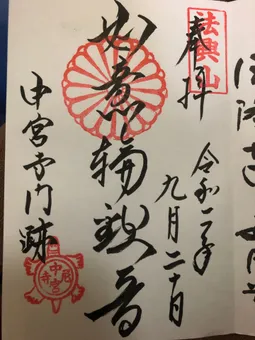 奉拝
法興山
令和二年
九月二十日
如意輪観音
中宮寺門跡
中宮尼寺